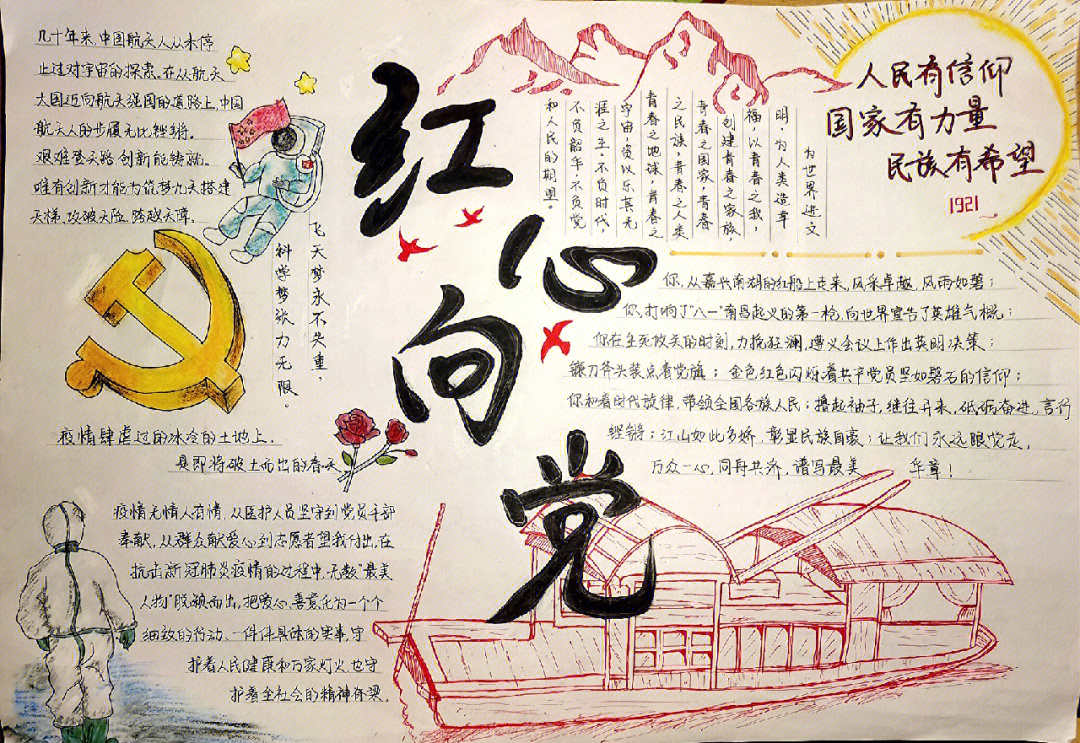 红心向党
几十年来,中国航天人从未停
止过对宇宙的探索。在从航天
大国迈向航天强国的道路上,中国
航天人的步履无比铿锵。
艰难登天路,创新能铸就。
唯有创新才能为筑梦九天搭建
天梯,攻破天险,跨越天障。
飞天梦永不失重,
科学梦张力无限。
疫情肆虐过的冰冷的土地上,
是即将破土而出的春天
疫情无情人有情,从医护人员坚守到党员干部
奉献,从群众献爱心到志愿者望我付出,在
抗击新冠肺炎疫情的过程中,无数“最美
人物”脱颖而出,把爱心、善意化为一个个
细致的行动、一件件具体的实事,守
护着人民健康和万家灯火,也守
护着全社会的精神脊梁。
人民有信仰
国家有力量
民族有希望
1921
为世界进文
明,为人类造幸
福,以青春之我,
创建青春之家族,
青春之国家,青春
之民族,青春之人类
青春之地球,青春之
宇宙,资以乐其无
涯之生。不负时代,
不负韶华,不负党
和人民的期望。
你,从嘉兴南湖的红船上走来,风采卓越,风雨如磐;
你,打响了“八一”南昌起义的第一枪,向世界宣告了英雄气概;
你在生死攸关的时刻,力挽狂澜,遵义会议上作出英明决策;
镰刀斧头装点着党旗;金色红色闪烁着共产党员坚如磐石的信仰;
你和着时代旋律,带领全国各族人民;撸起袖子,继往开来,砥砺奋进,言行
铿锵;江山如此多娇,彰显民族自豪;让我们永远跟党走,
万众一心,同舟共济,谱写最美 华章!